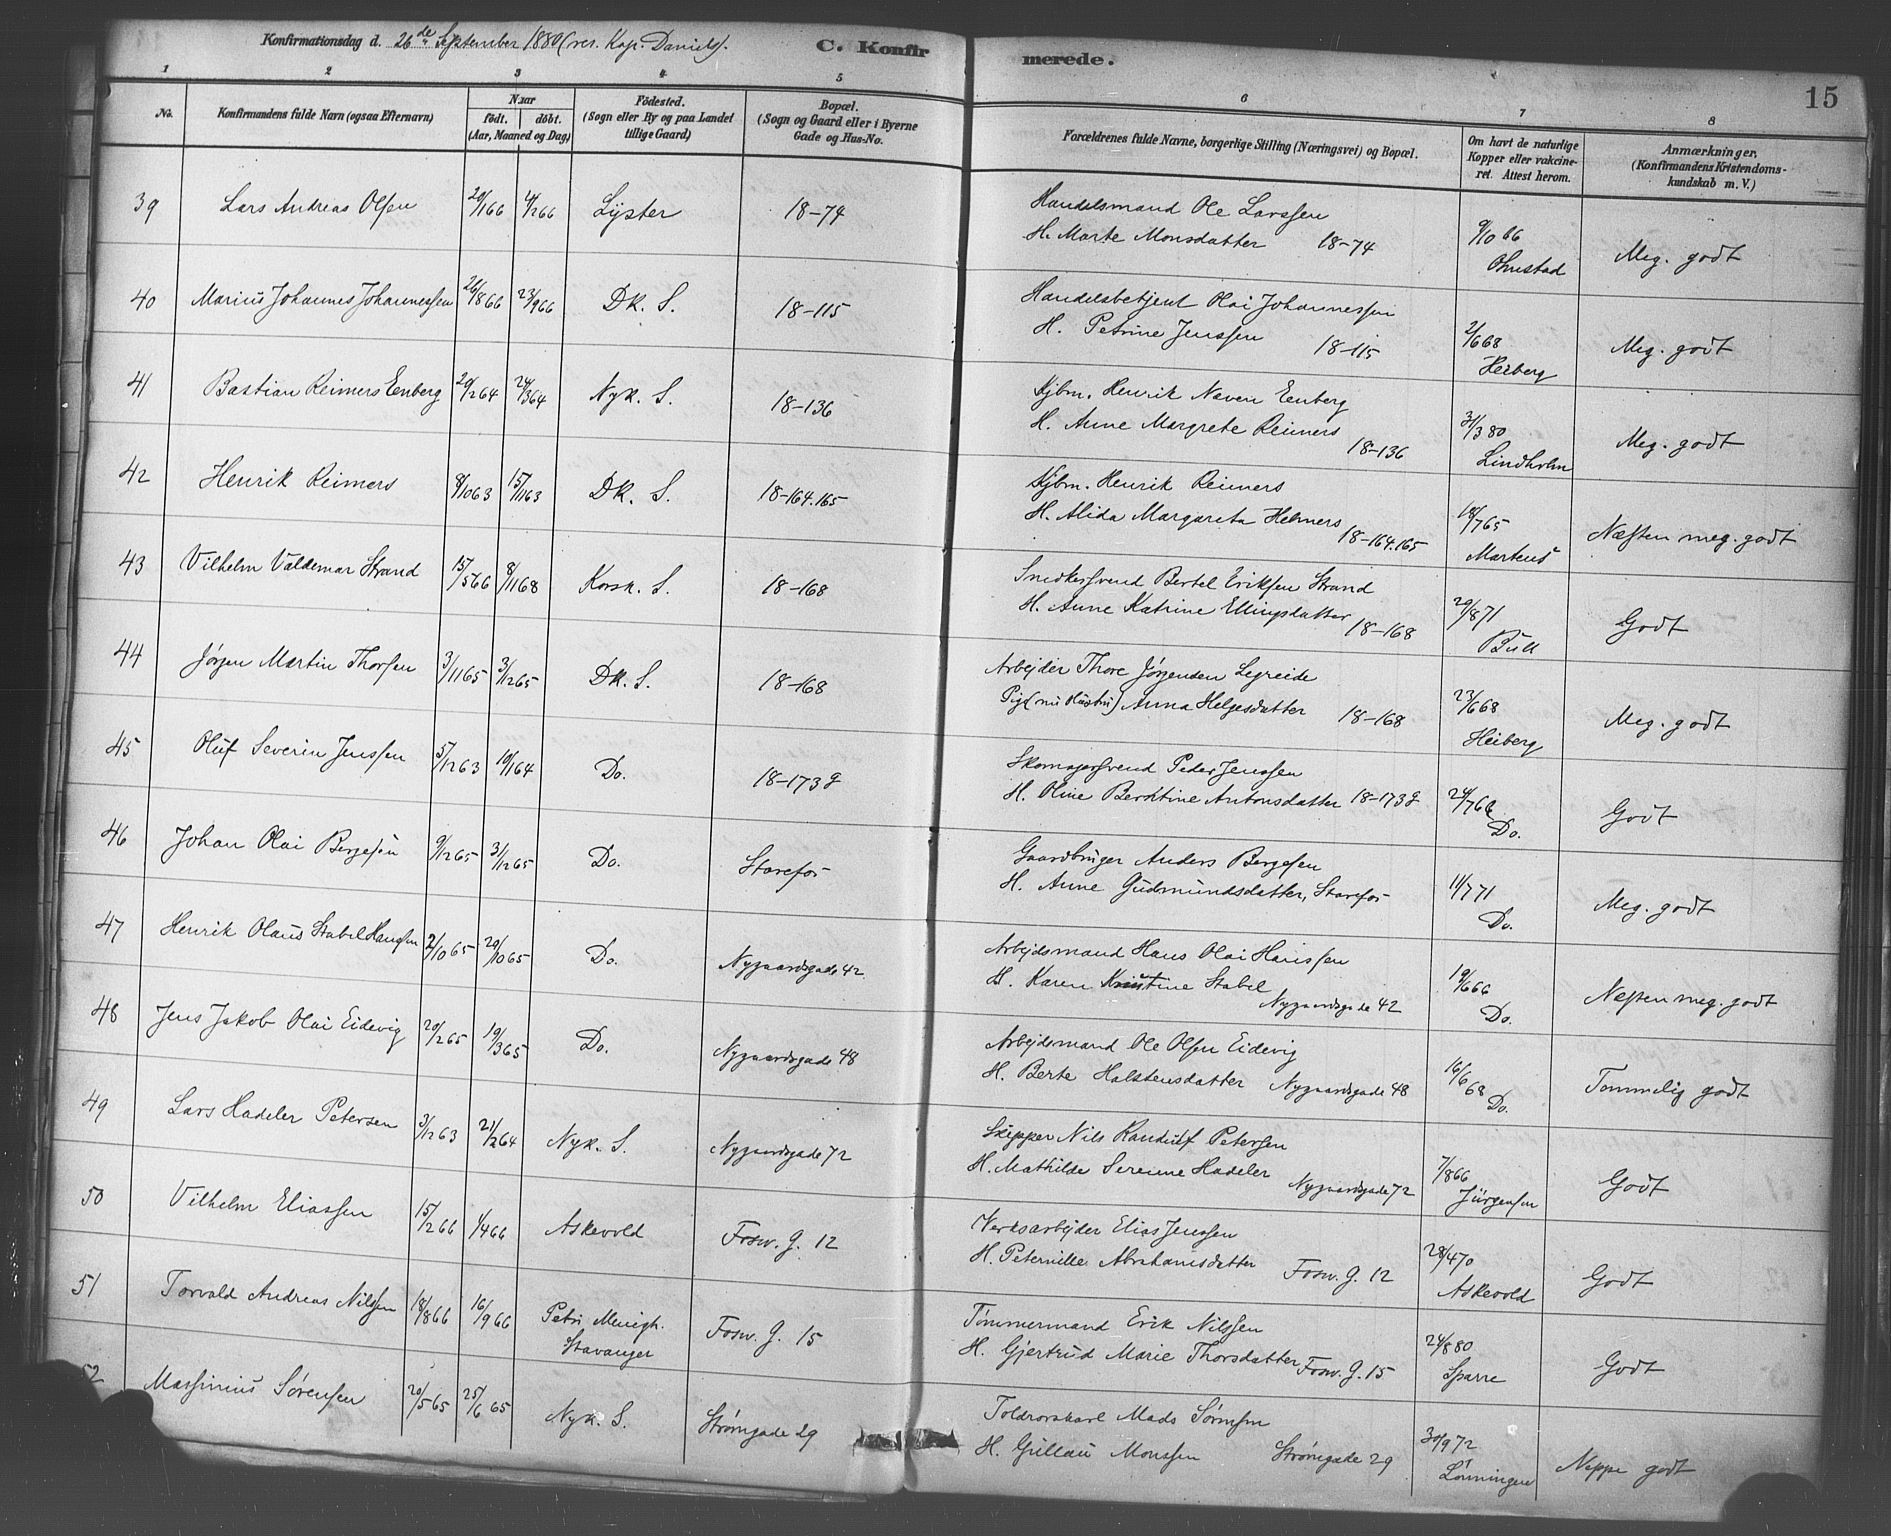 Konfirmationsdag d. 26de September 1880 (res. Kap. Daniels).
C. Konfirmerede.
15
1 2 3 4 5 6 7 8
No.
Konfirmandens fulde Navn (ogsaa Efternavn)
Naar
födt. döbt.
(Aar, Maaned og Dag)
Födested.
(Sogn eller By og paa Landet
tillige Gaard)
Bopæl.
(Sogn og Gaard eller i Byerne
Gade og Hus-No.
Forældrenes fulde Navne, borgerlige Stilling (Næringsvei) og Bopæl.
Om havt de naturlige
Kopper eller vakcine-
ret. Attest herom.
Anmærkninger.
(Konfirmandens Kristendoms-
kundskab m. V.)
39 Lars Andreas Olsen 20/1 66 4/2 66 Lyster 18-74 Handelsmand Ole Larssen
H. Marte Monsdatter 18-74 9/10 66 Ohnstad Meg. godt
40 Marius Johannes Johannessen 26/8 66 23/9 66 Dk. S. 18-115 Handelsbetjent Olai Johannessen
H. Petrine Jenssen 18-115 2/6 68 Heiberg Meg. godt
41 Bastian Reimers Eenberg 20/2 64 24/3 64 Nyk. S. 18-136 Kjbm. Henrik Neven Eenberg
H. Anne Margrete Reimers 18-136 31/3 80 Lindholm Meg. godt
42 Henrik Reimers 8/10 63 15/11 63 Dk. S. 18-164.165 Kjbm. Henrik Reimers
H. Alida Margareta Helmers 18-164.165 18/7 65 Martens Næsten meg. godt
43 Vilhelm Valdemar Strand 15/5 66 8/11 68 Korsk. S. 18-168 Snedkersvend Bertel Eriksen Strand
H. Anne Katrine Ellingsdatter 18-168 29/8 71 Bull Godt
44 Jörgen Martin Thorsen 3/11 65 3/12 65 Dk. S. 18-168 Arbejder Thore Jørgensen Legreide
Pig (nu Hustru) Anna Helgesdatter 18-168 23/6 68 Heiberg Meg. godt
45 Oluf Severin Jenssen 5/12 63 10/1 64 Do. 18-173 g Skomagersvend Peder Jenssen
H. Oline Berntine Antonsdatter 18-173 g 24/7 66 Do. Godt
46 Johan Olai Bergesen 9/12 65 31/12 65 Do. Starefos Gaardbruger Anders Bergesen
H. Anne Gudmundsdatter, Starefos 14/7 71 Do. Meg. godt
47 Henrik Olaus Stabel Hanssen 2/10 65 29/10 65 Do. Nygaardsgade 42 Arbejdsmand Hans Olai Hanssen
H. Karen Kristine Stabel Nygaardsgade 42 19/6 66 Do. Næsten meg. godt
48 Jens Jakob Olai Eidevig 20/2 65 19/3 65 Do. Nygaardsgade 48 Arbejdsmand Ole Olsen Eidevig
H. Berte Halstensdatter Nygaardsgade 48 16/6 68 Do. Temmelig godt
49 Lars Hadeler Petersen 3/12 63 21/2 64 Nyk. S. Nygaardsgade 72 Skipper Nils Randulf Petersen
H. Mathilde Serenne Hadeler Nygaardsgade 72 7/8 66 Jürgensen Godt
50 Vilhelm Eliassen 15/2 66 1/4 66 Askevold Fosw. G. 12 Verksarbejder Elias Jenssen
H. Peternille Abrahamsdatter Fosw. G. 12 28/4 70 Askevold Godt
51 Torvald Andreas Nilssen 18/8 66 16/9 66 Petri Menigh. Stavanger Fosw. G. 15 Tömmermand Erik Nilssen
H. Gjertrud Marie Thorsdatter Fosw. G. 15 24/8 80 Sparre Godt
52 Massinius Sørensen 20/5 65 25/6 65 Nyk. S. Strömgade 29 Toldrorskarl Mads Sörensen
H. Gullau Monssen Strömgade 29 30/9 72 Lönningen Neppe godt